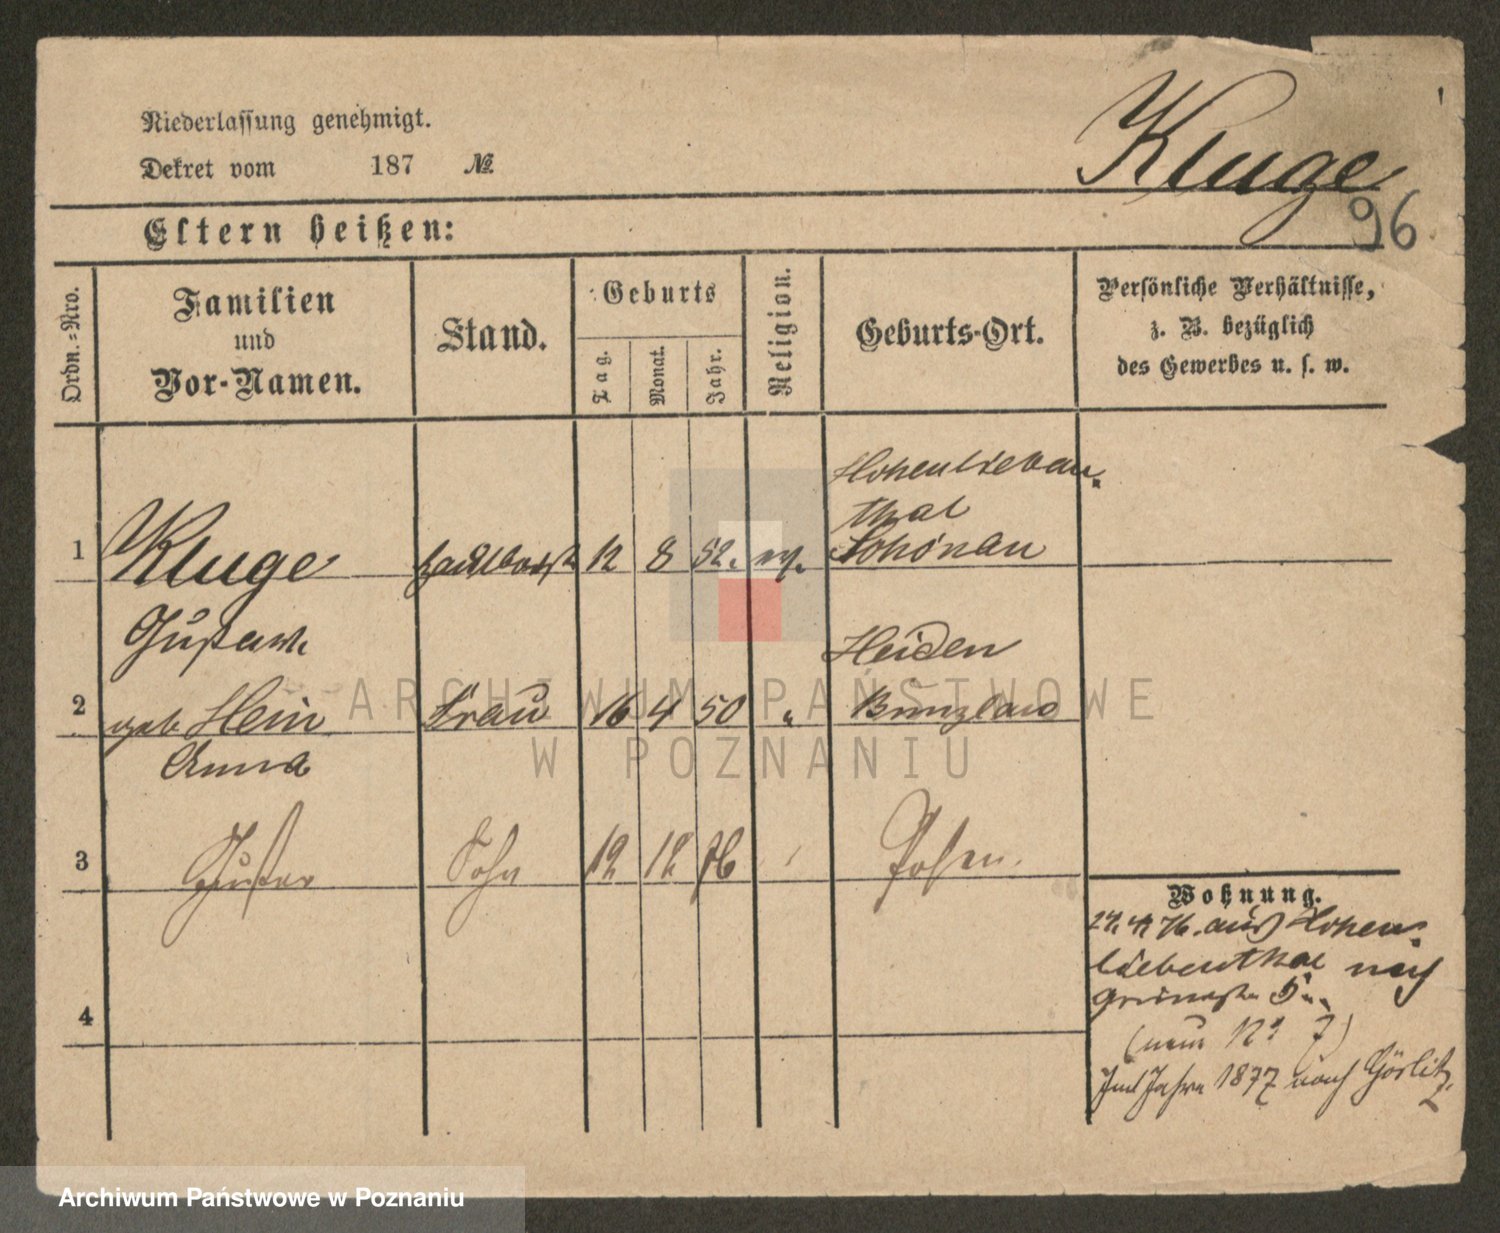 Niederlassung genehmigt.
Dekret vom 187 №
Kluge
96
Eltern heißen:
Ordn.-Nro.
Familien
und
Vor-Namen.
Stand.
Geburts
Tag.
Monat.
Jahr.
Religion.
Geburts-Ort.
Persönliche Verhältnisse,
z. B. bezüglich
des Gewerbes u. s. w.
Hohenlieben
thal
1 Kluge 12 8 52. ev. Schönau
Gustav
Heiden
2 geb Hein Frau 16 4 50 " Bunzlau
Anna
3 Gustav Sohn 12 12 76 Posen.
Wohnung.
24. 4 76. aus Hohen
liebenthal nach
5
4
(neu No 7)
Im Jahre 1877 nach Görlitz
ARCHIWUM PAŃSTWOWE
W POZNANIU
Archiwum Państwowe w Poznaniu